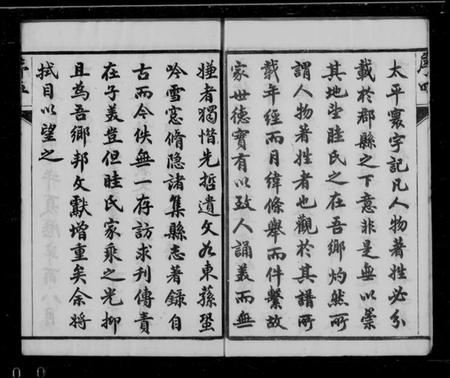 太平寰宇記凡人物著姓必分
載於郡縣之下意非是無以崇
其地望眭氏之在吾鄉灼然所
謂人物著姓者也觀於其譜所
載年經而月緯條舉而件繫故
家世德寶有以致人誦美而無
撻者獨惜先哲遺文如東蓀蛩
吟雪窓脩隐諸集縣志著録自
古而今佚無一存訪求刊傳責
在子美豈但眭氏家乘之光抑
且為吾鄉邦文獻增重矣余將
拭目以望之